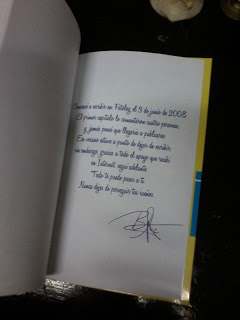 Comencé a escribir en Fotolog el 3 de junio de 2008
El primer capítulo lo comentaron cuatro personas,
y jamás pensé que llegaría a publicarse.
Ese verano estuve a punto de dejar de escribir,
sin embargo, gracias a todo el apoyo que recibí
en Internet, seguí adelante.
Todo te puede pasar a ti.
Nunca dejes de perseguir tus sueños.